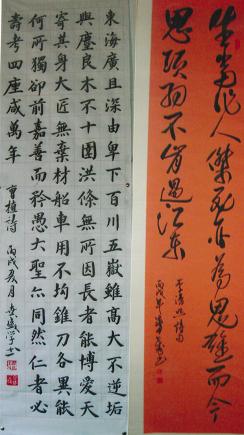 生當作人傑死亦為鬼雄而今
思項羽不肯過江東
李清照詩句
丙戌年
東海廣且深由卑下百川五嶽雖高大不逆垢
與塵良木不十圍洪條無所因長者能博愛天
寄其身大匠無棄材船車用不均錐刀各異能
何所獨卻前嘉善而矜愚大聖亦同然仁者必
壽考四座咸萬年
曹植詩 丙戌夏月